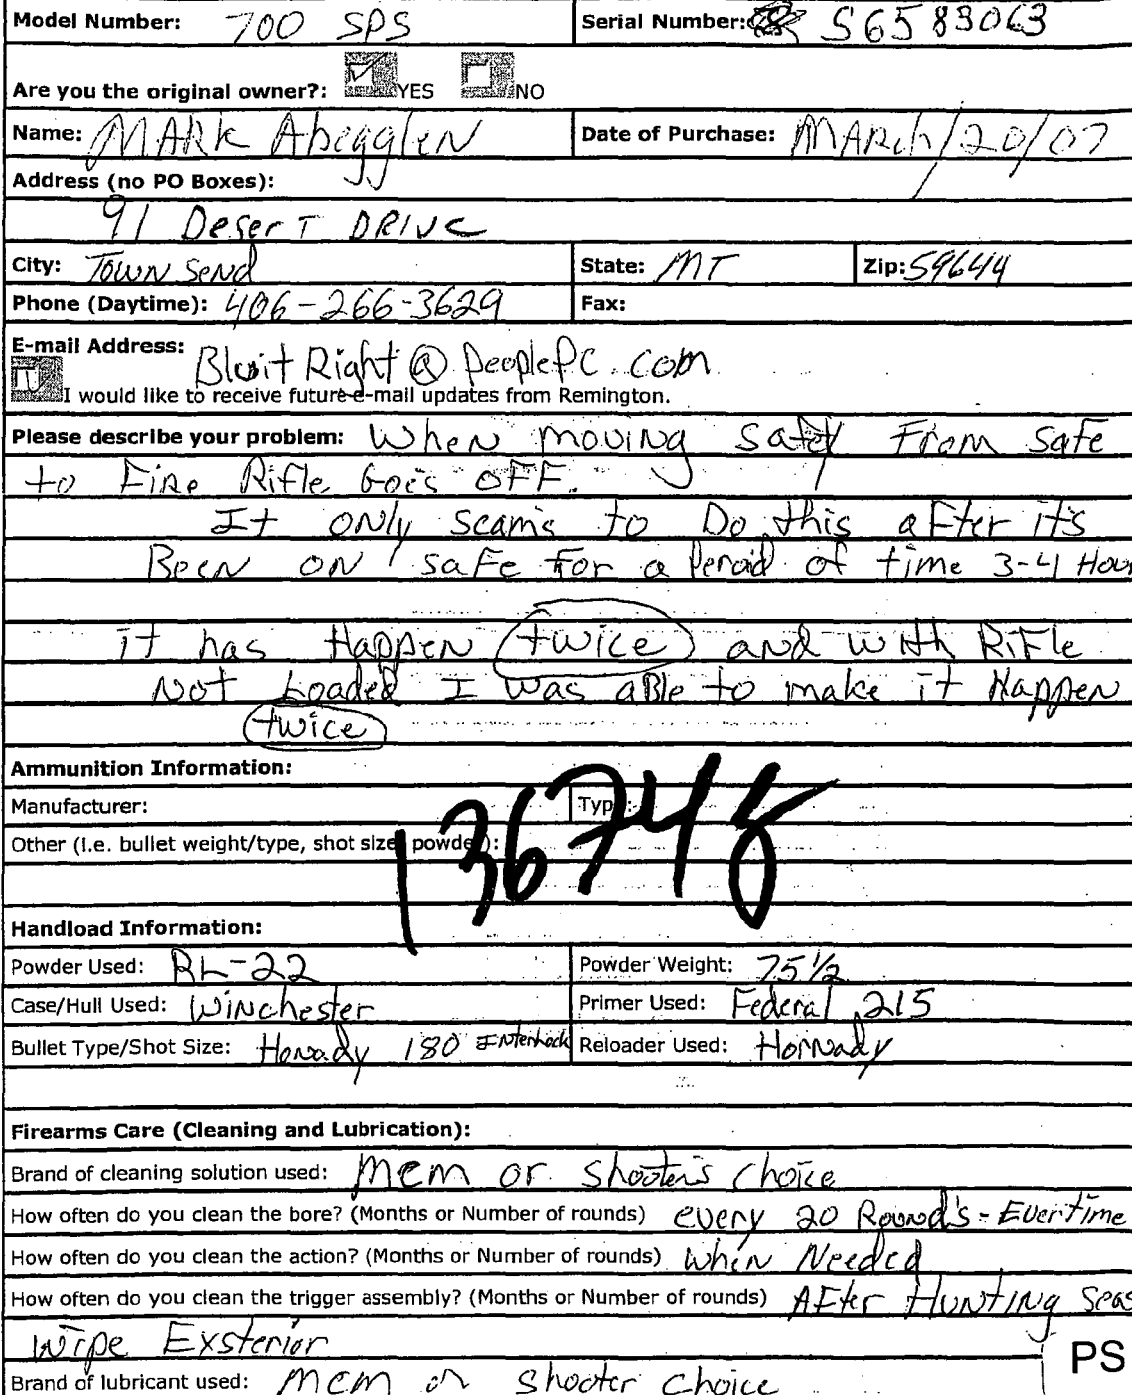 Model Number: 700 SPS Serial Number: S6583063
Are you the original owner?: YES NO
Name: MARK Abegglen Date of Purchase: MARch/20/07
Address (no PO Boxes):
91 Desert DRIVE
City: Townsend State: MT Zip: 59644
Phone (Daytime): 406-266-3629 Fax:
E-mail Address: Bluit Right@peoplePC.com
I would like to receive future e-mail updates from Remington.
Please describe your problem: When moving safety From safe
to Fire Rifle Goes OFF.
It only seams to Do this after it's
Been on safe For a Peroid of time 3-4 Hour
it has Happen twice and with RiFle
Not Loaded I was aBle to make it Happen
twice
Ammunition Information:
Manufacturer: Type:
Other (i.e. bullet weight/type, shot size, powder):
Handload Information:
Powder Used: RL-22 Powder Weight: 75 1/2
Case/Hull Used: Winchester Primer Used: Federal 215
Bullet Type/Shot Size: Honady 180 Reloader Used: Hornady
Firearms Care (Cleaning and Lubrication):
Brand of cleaning solution used: or shooter's choice
How often do you clean the bore? (Months or Number of rounds) every 20 Round's - Evertime
How often do you clean the action? (Months or Number of rounds) when Needed
How often do you clean the trigger assembly? (Months or Number of rounds) AFter Hunting Seas
wipe Exsterior
PS
Brand of lubricant used: or shooter choice